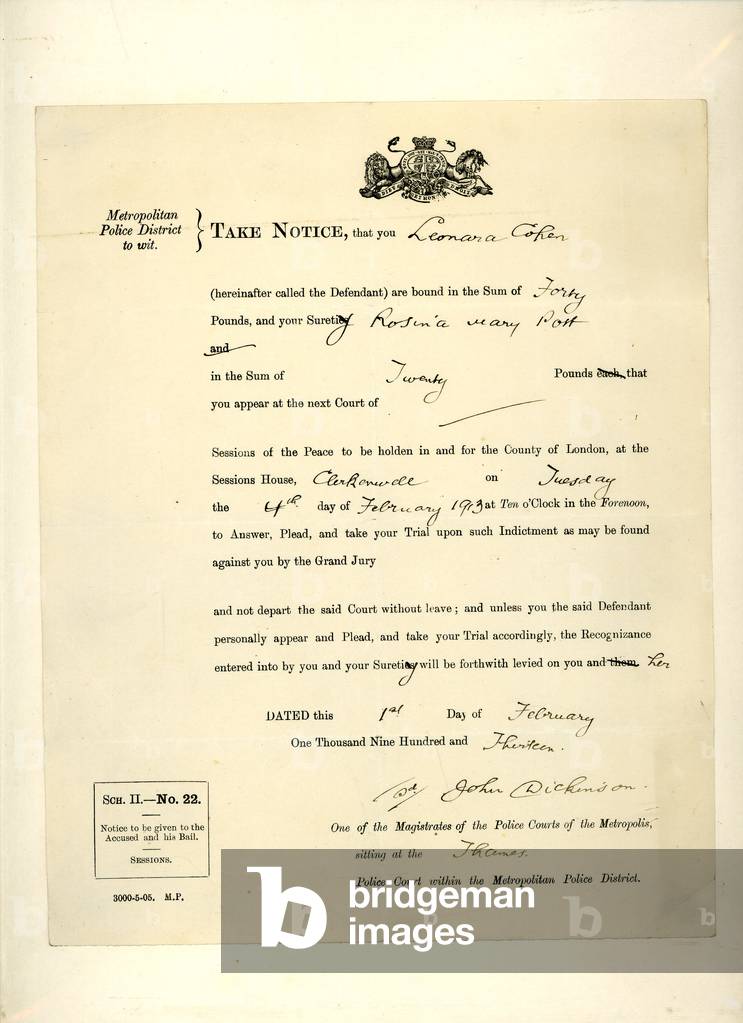 Metropolitan
Police District
to wit.
TAKE NOTICE, that you Leonara Cohen
(hereinafter called the Defendant) are bound in the Sum of Forty
Pounds, and your Surety Rosina Mary Pott
and
in the Sum of Twenty Pounds each, that
you appear at the next Court of
Sessions of the Peace to be holden in and for the County of London, at the
Sessions House, Clerkenwell on Tuesday
the 4th day of February 1913 at Ten o'Clock in the Forenoon,
to Answer, Plead, and take your Trial upon such Indictment as may be found
against you by the Grand Jury
and not depart the said Court without leave; and unless you the said Defendant
personally appear and Plead, and take your Trial accordingly, the Recognizance
entered into by you and your Surety will be forthwith levied on you and them her
DATED this 1st Day of February
One Thousand Nine Hundred and Thirteen.
Sd/ John Dickinson.
One of the Magistrates of the Police Courts of the Metropolis,
sitting at the Thames.
Police Court within the Metropolitan Police District.
SCH. II.—No. 22.
Notice to be given to the
Accused and his Bail.
SESSIONS.
3000-5-05. M.P.
b bridgeman
images